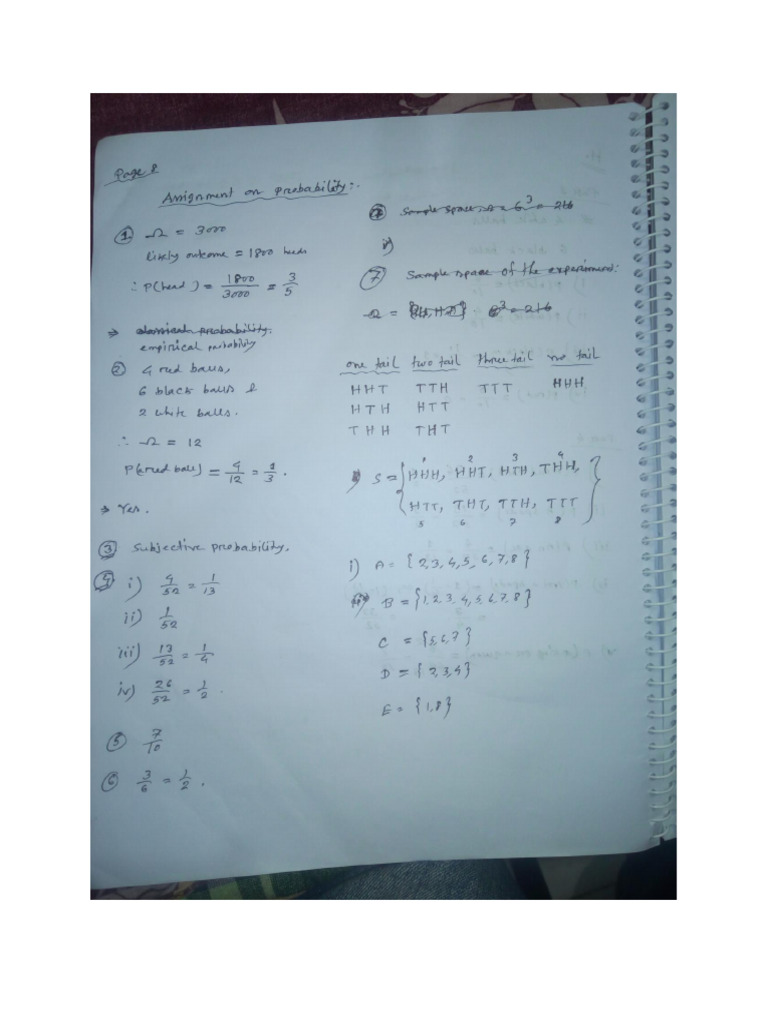 Page 8
Assignment on probability:-
① Ω = 3000
likely outcome = 1800 heads
∴ P(head) = 1800/3000 = 3/5
⇒ classical probability.
empirical probability
② 4 red balls,
6 black balls &
2 white balls.
∴ Ω = 12
P(red ball) = 4/12 = 1/3.
⇒ Yes.
③ subjective probability.
④ i) 4/52 = 1/13
ii) 1/52
iii) 13/52 = 1/4
iv) 26/52 = 1/2.
⑤ 7/10
⑥ 3/6 = 1/2.
⑦ Sample space = 6³ = 216
⑦ Sample space of the experiment:
Ω = 6³ = 216
one tail two tail three tail no tail
HHT TTH TTT HHH
HTH HTT
THH THT
S = {HHH, HHT, HTH, THH,
1 2 3 4
HTT, THT, TTH, TTT}
5 6 7 8
i) A = {2,3,4,5,6,7,8}
B = {1,2,3,4,5,6,7,8}
C = {5,6,7}
D = {2,3,4}
E = {1,8}